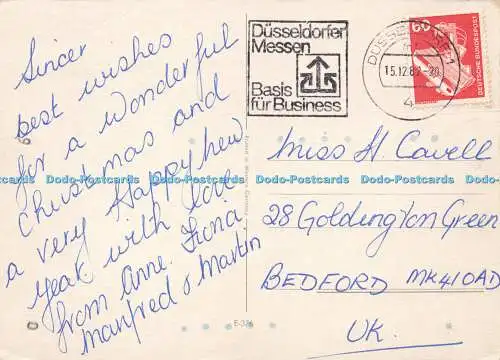 Sincer
best wishes
for a wonderful
Christmas and
a very Happy new
year with love
from Anne. Fiona
Manfred & Martin
Düsseldorfer
Messen
Basis
für Business
DÜSSELDORF 1
15.12.82-20
60
DEUTSCHE BUNDESPOST
Miss H. Cavell
28 Goldington Green
BEDFORD MK41 0AD
UK.
E-324
Dodo-Postcards Dodo-Postcards Dodo-Postcards Dodo-Postcards Dodo-Postcards